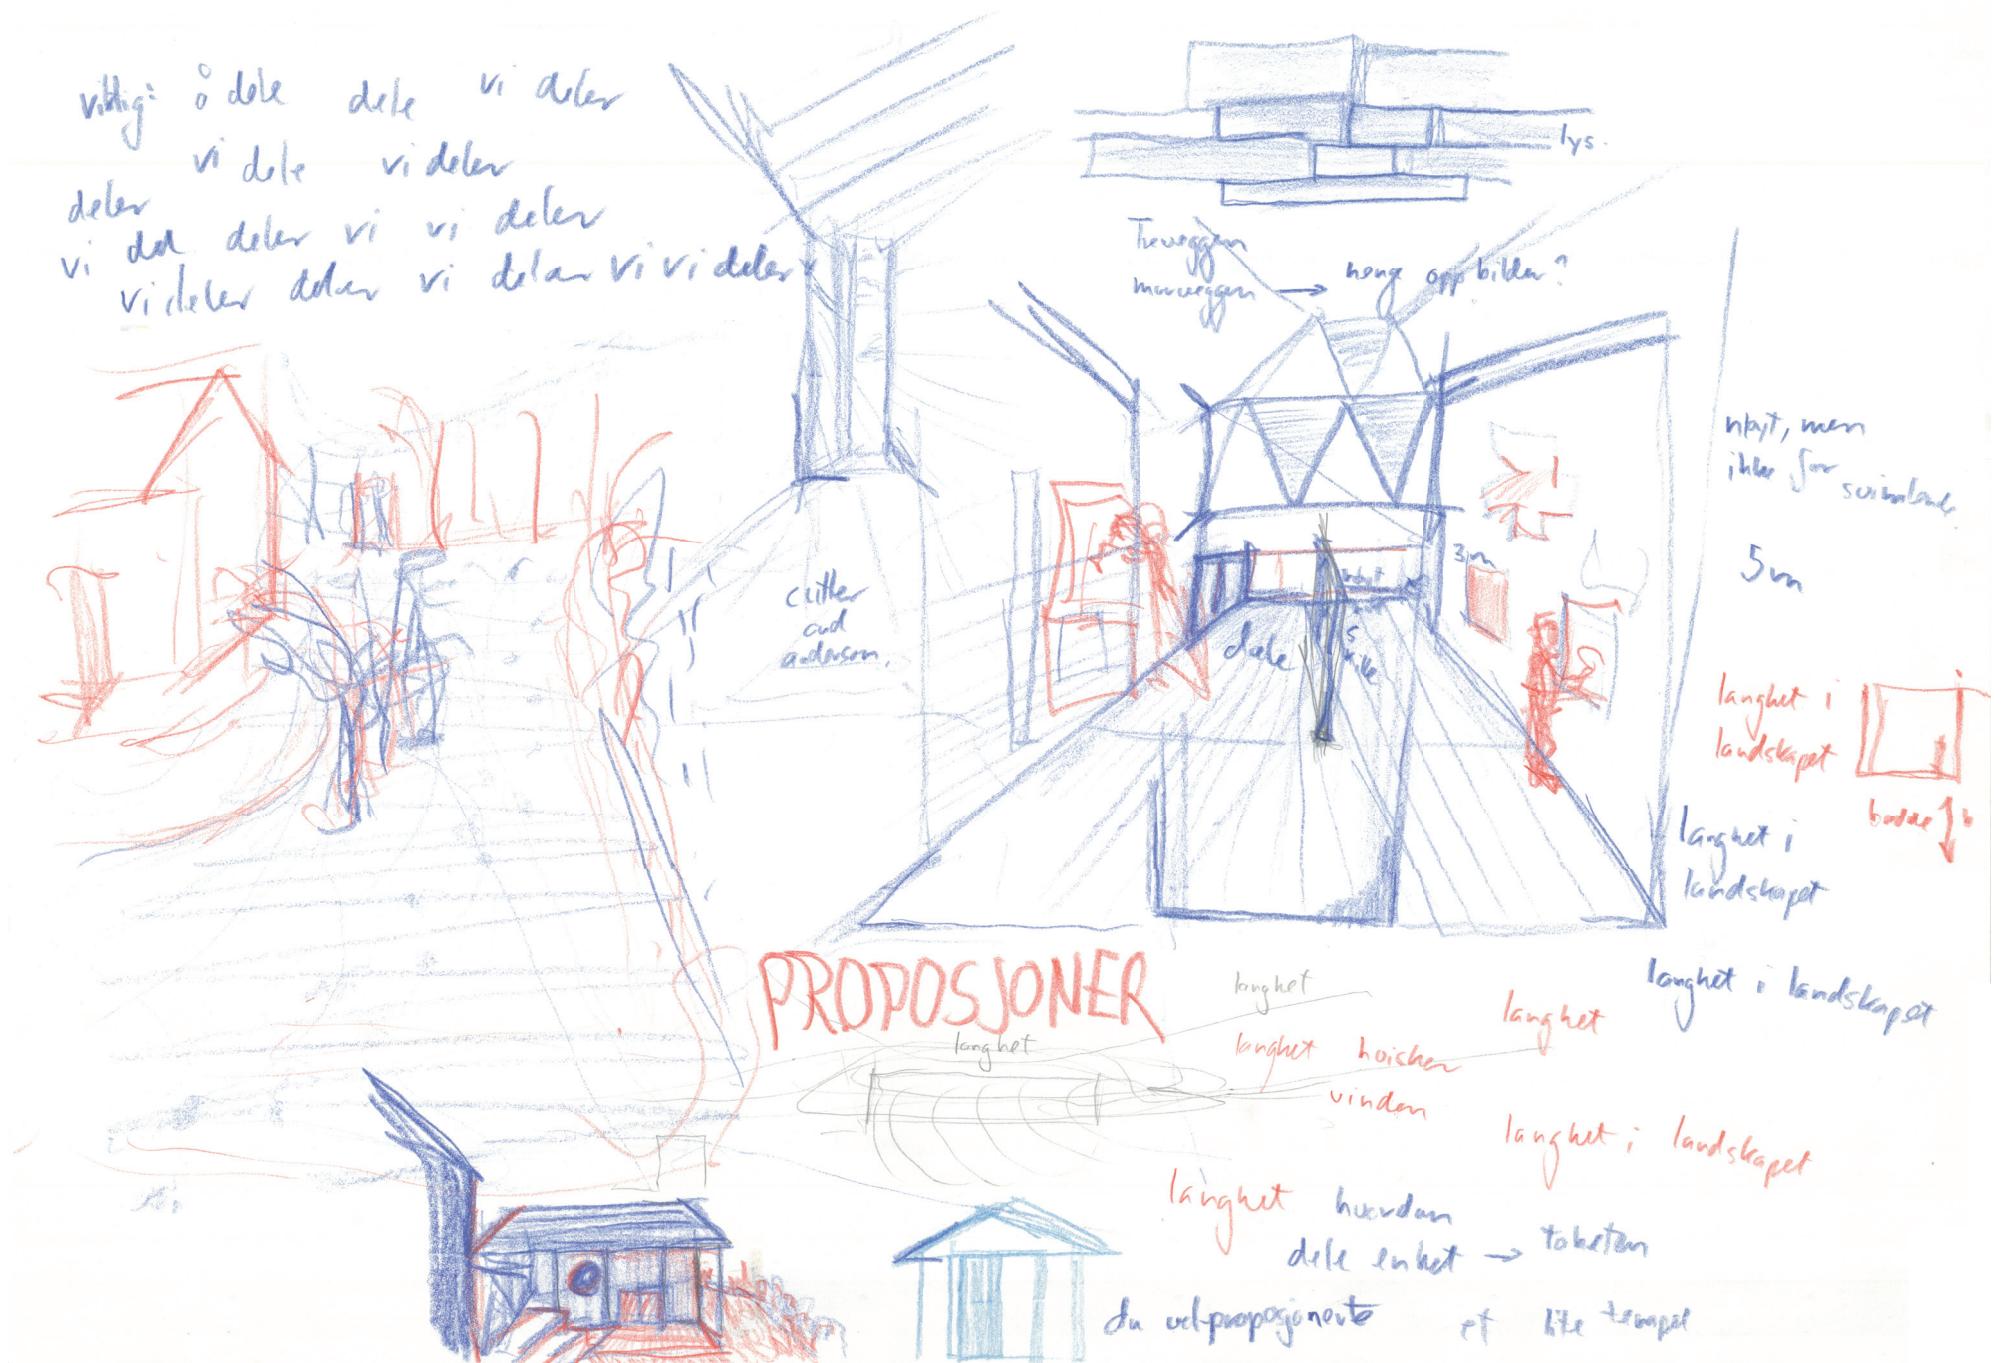 viktig: å dele dele vi deler
vi dele vi deler
deler
vi del deler vi vi deler
vi deler deler vi deler vi vi deler
lys.
Treveggen
murveggen → henge opp bilder?
høyt, men
ikke for svimlende.
5m
3m
cutler
and
anderson.
dele
høyt
langhet i
landskapet
bredde
langhet i
landskapet
langhet i landskapet
PROPOSJONER
langhet
langhet
langhet
langhet hvisker
vinden
langhet i landskapet
langhet hvordan
dele enhet →
du vel-proposjonerte et lite tempel